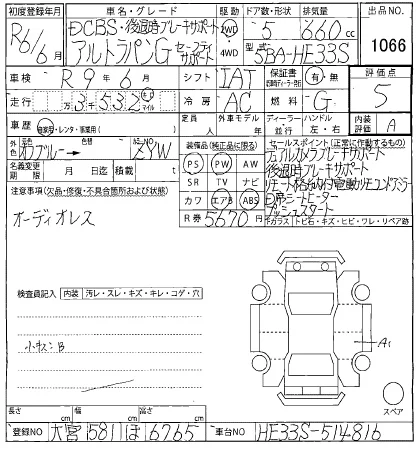 初度登録年月 車名・グレード 駆動 ドア数・形状 排気量 出品NO.
R6/6月 DCBS・後退時ブレーキサポート 2WD 5 660cc 1066
アルトラパンG セーフティサポート 4WD 型式 5BA-HE33S
車検 R9年6月 シフト IAT 保証書 有・無 評価点
走行 万3千532 キロ マイル 冷房 AC 燃料 G 5
車歴 自家用・レンタ・事業用( ) 定員 人 外車モデル 年 ディーラー 並行 ハンドル 左・右 内装評価 A
外色 元色 オフブルー→ 色替 カラーNO ZYW 装備品(純正品に限る) セールスポイント(正常に作動するもの)
名義変更期限 月 日迄 積載 t PS PW AW デュアルカメラブレーキサポート
注意事項(欠品・修復・不具合箇所および状態) SR TV ナビ 後退時ブレーキサポート
オーディオレス カワ エアB ABS リモート格納付電動リモコンドアミラー
R券 5670円 D席シートヒーター
プッシュスタート
下カラス・トビ石・キズ・ヒビ・ワレ・リペア跡
検査員記入 内装 汚レ・スレ・キズ・キレ・コゲ・穴
小キズB
A1
スペア
長さ cm 幅 cm 高さ cm
登録NO 大宮 581 ぽ 6765 車台NO HE33S-514816